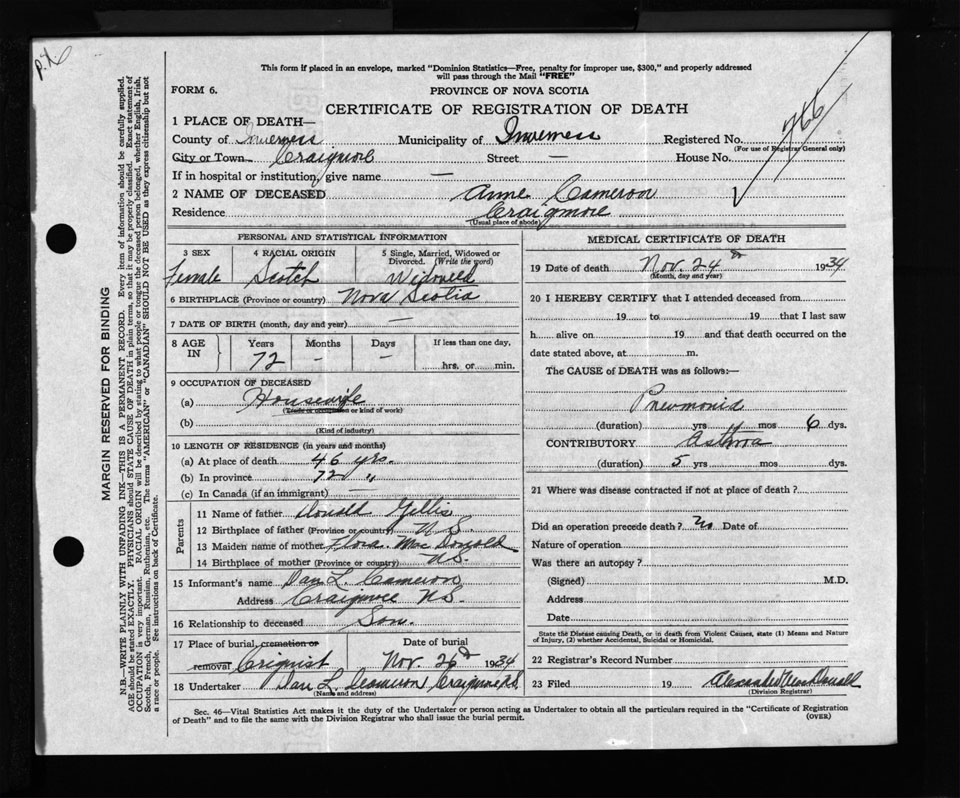 p.x
This form if placed in an envelope, marked "Dominion Statistics—Free, penalty for improper use, $300," and properly addressed
will pass through the Mail "FREE"
FORM 6.
PROVINCE OF NOVA SCOTIA
CERTIFICATE OF REGISTRATION OF DEATH
1 PLACE OF DEATH—
County of Inverness Municipality of Inverness Registered No. 766
(For use of Registrar General only)
City or Town Craigmore Street — House No.
If in hospital or institution, give name —
2 NAME OF DECEASED Anne Cameron
Residence Craigmore
(Usual place of abode)
PERSONAL AND STATISTICAL INFORMATION
3 SEX 4 RACIAL ORIGIN 5 Single, Married, Widowed or
Divorced. (Write the word)
Female Scotch Widowed
6 BIRTHPLACE (Province or country) Nova Scotia
7 DATE OF BIRTH (month, day and year) —
8 AGE IN Years Months Days If less than one day,
72 - - hrs. or min.
9 OCCUPATION OF DECEASED
(a) Housewife
(Trade or occupation or kind of work)
(b)
(Kind of industry)
10 LENGTH OF RESIDENCE (in years and months)
(a) At place of death 46 yrs.
(b) In province 72 "
(c) In Canada (if an immigrant) —
Parents
11 Name of father Donald Gillis
12 Birthplace of father (Province or country) N.S.
13 Maiden name of mother Flora MacDonald
14 Birthplace of mother (Province or country) N.S.
15 Informant's name Dan L. Cameron
Address Craigmore N.S.
16 Relationship to deceased Son.
17 Place of burial, cremation or Date of burial
removal Criqnist Nov. 26d 1934
18 Undertaker Dan L. Cameron Craigmore N.S.
(Name and address)
MEDICAL CERTIFICATE OF DEATH
19 Date of death Nov. 24 1934
(Month, day and year)
20 I HEREBY CERTIFY that I attended deceased from
19 to 19 that I last saw
h alive on 19 and that death occurred on the
date stated above, at m.
The CAUSE of DEATH was as follows:—
Pneumonia
(duration) yrs mos 6 dys.
CONTRIBUTORY Asthma
(duration) 5 yrs mos dys.
21 Where was disease contracted if not at place of death?
Did an operation precede death? no Date of
Nature of operation
Was there an autopsy?
(Signed) M.D.
Address
Date
State the Disease causing Death, or in death from Violent Causes, state (1) Means and Nature
of Injury, (2) whether Accidental, Suicidal or Homicidal.
22 Registrar's Record Number
23 Filed 19 Alexander MacDonald
(Division Registrar)
Sec. 46—Vital Statistics Act makes it the duty of the Undertaker or person acting as Undertaker to obtain all the particulars required in the "Certificate of Registration
of Death" and to file the same with the Division Registrar who shall issue the burial permit.
(OVER)
MARGIN RESERVED FOR BINDING
N.B.—WRITE PLAINLY WITH UNFADING INK—THIS IS A PERMANENT RECORD. Every item of information should be carefully supplied.
AGE should be stated EXACTLY. PHYSICIANS should STATE CAUSE OF DEATH in plain terms, so that it may be properly classified. Exact statement of
OCCUPATION is very important. RACIAL ORIGIN will be described by stating to what people or tongue the deceased person belonged, whether English, Irish,
Scotch, French, German, Russian, Ruthenian, etc. The terms "AMERICAN" or "CANADIAN" SHOULD NOT BE USED as they express citizenship but not
a race or people. See instructions on back of Certificate.